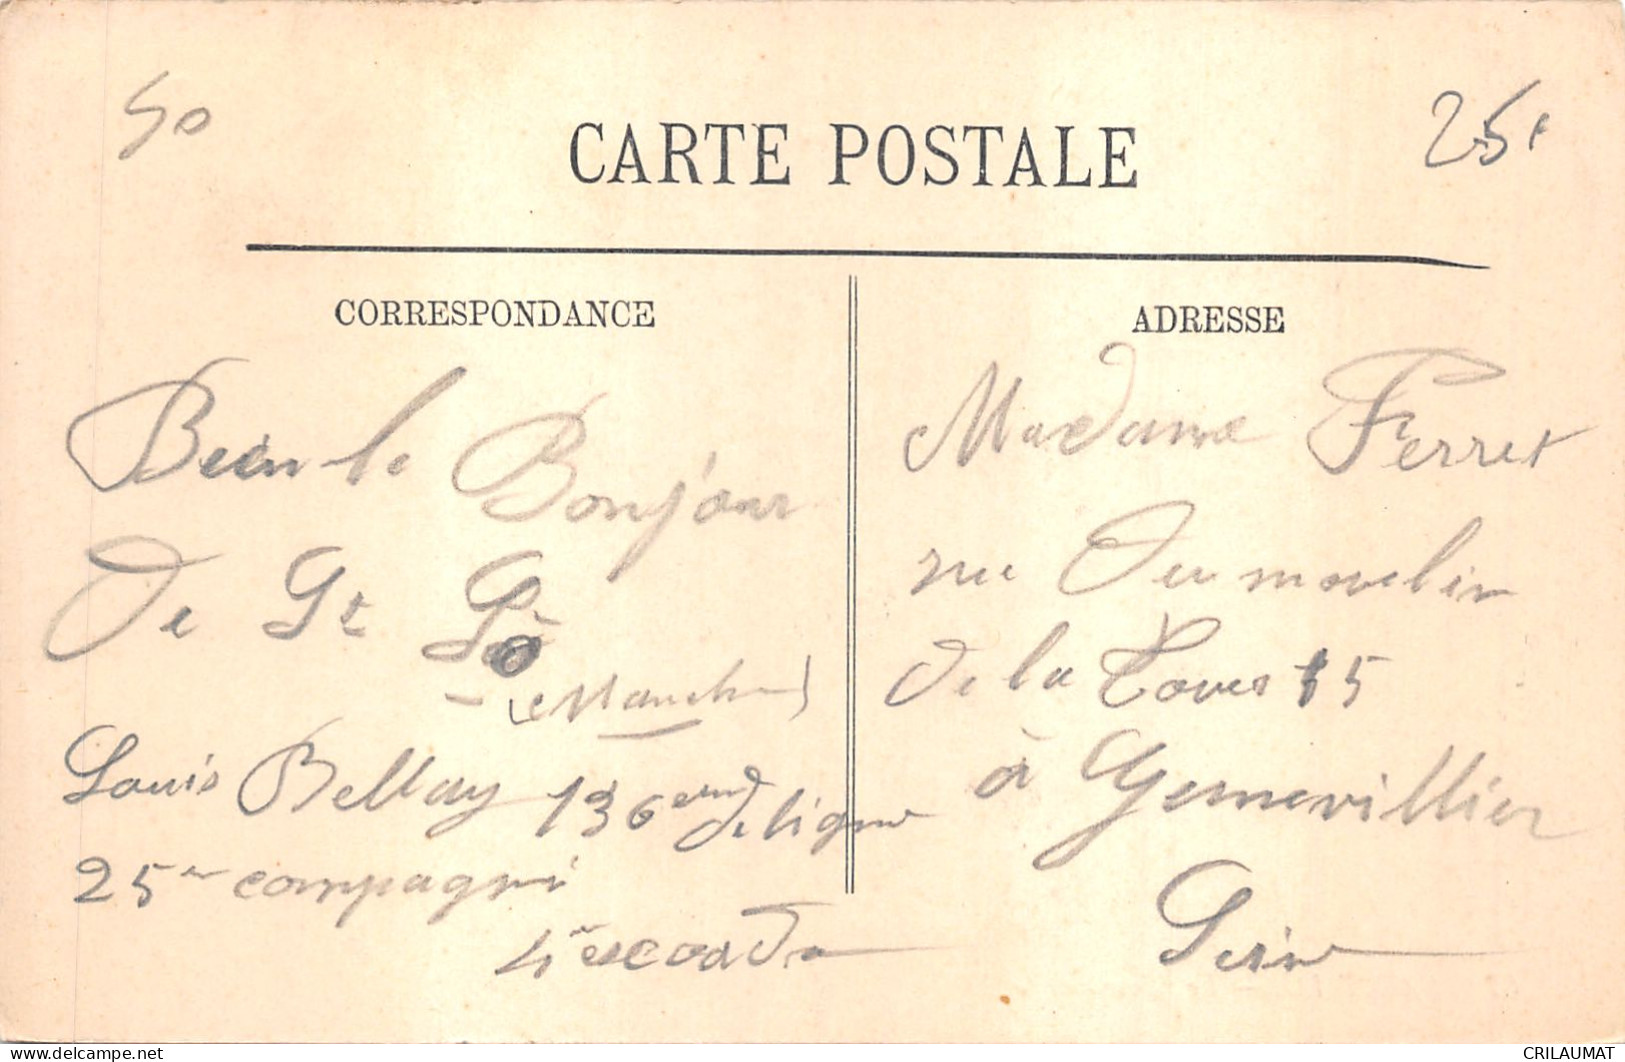 50
25f
CARTE POSTALE
CORRESPONDANCE
Bien le Bonjour
De St Lo
Louis Bellay 136eme de ligne
25me compagni
4eme escouada
ADRESSE
Madame Ferret
rue Du moulin
de la Tours 15
à Gennevillier
Seine
CRILAUMAT